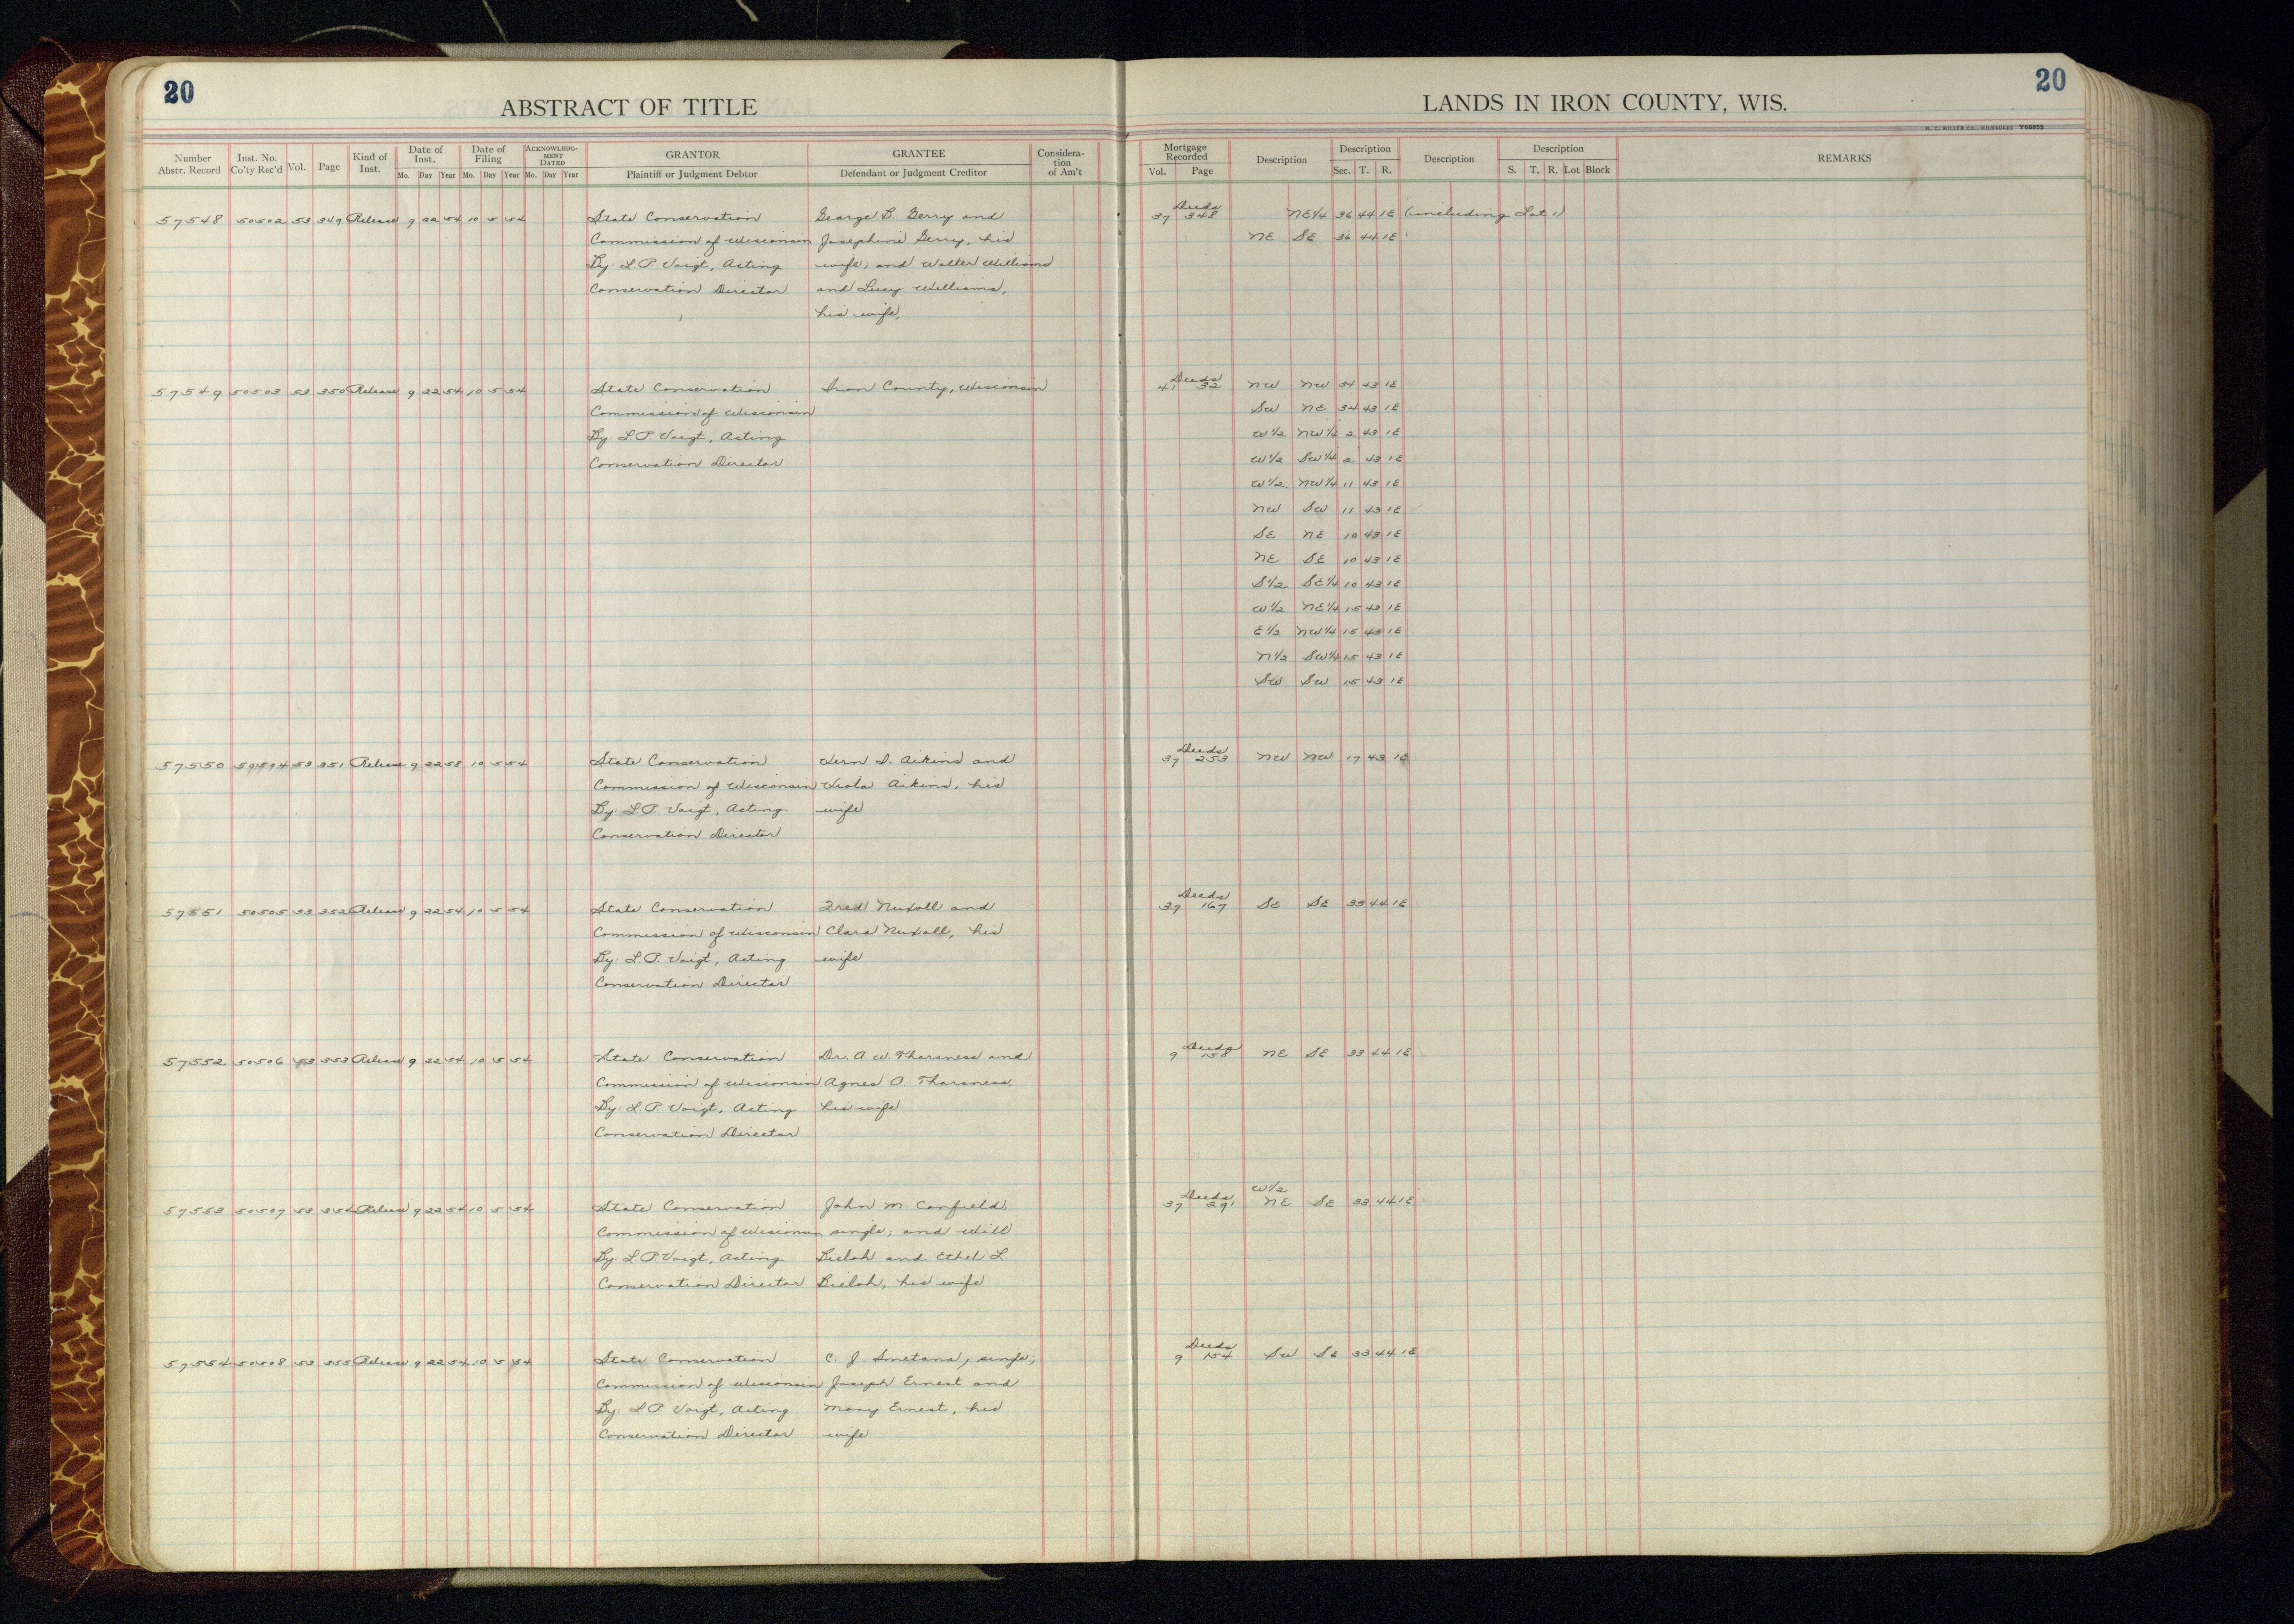 20
20
ABSTRACT OF TITLE
LANDS IN IRON COUNTY, WIS.
H. C. MILLER CO., MILWAUKEE Y66855
Number Abstr. Record Inst. No. Co'ty Rec'd Vol. Page Kind of Inst. Date of Inst. Mo. Day Year Date of Filing Mo. Day Year ACKNOWLEDG-MENT DATED Mo. Day Year GRANTOR Plaintiff or Judgment Debtor GRANTEE Defendant or Judgment Creditor Considera-tion of Am't Mortgage Recorded Vol. Page Description Description Sec. T. R. Description Description S. T. R. Lot Block REMARKS
Deeds
57548 50502 53 349 Release 9 22 54 10 5 54 State Conservation George B. Gerry and 37 348 NE1/4 36 44 1E (including Lot 1)
Commission of Wisconsin Josephine Gerry, his NE SE 36 44 1E
By: L.P. Voigt, Acting wife; and Walter Williams
Conservation Director and Lucy Williams,
his wife.
Deeds
57549 50503 53 350 Release 9 22 54 10 5 54 State Conservation Iron County, Wisconsin 41 32 NW NW 34 43 1E
Commission of Wisconsin SW NE 34 43 1E
By: L.P. Voigt, Acting W1/2 NW1/4 2 43 1E
Conservation Director W1/2 SW1/4 2 43 1E
W1/2 NW1/4 11 43 1E
NW SW 11 43 1E
SE NE 10 43 1E
NE SE 10 43 1E
S1/2 SE1/4 10 43 1E
W1/2 NE1/4 15 43 1E
E1/2 NW1/4 15 43 1E
N1/2 SW1/4 15 43 1E
SW SW 15 43 1E
Deeds
57550 50504 53 351 Release 9 22 58 10 5 54 State Conservation Vern I. Aikins and 37 253 NW NW 17 43 1E
Commission of Wisconsin Viola Aikins, his
By: L.P. Voigt, Acting wife
Conservation Director
Deeds
57551 50505 53 352 Release 9 22 54 10 5 54 State Conservation Fred Nuxoll and 37 167 SE SE 33 44 1E
Commission of Wisconsin Clara Nuxoll, his
By: L.P. Voigt, Acting wife
Conservation Director
Deeds
57552 50506 53 353 Release 9 22 54 10 5 54 State Conservation Dr. A W. Tharsness and 9 158 NE SE 33 44 1E
Commission of Wisconsin Agnes O. Tharsness,
By: L.P. Voigt, Acting his wife
Conservation Director
Deeds W1/2
57553 50507 53 354 Release 9 22 54 10 5 54 State Conservation John M. Canfield, 37 291 NE SE 33 44 1E
Commission of Wisconsin single; and Will
By: L.P. Voigt, Acting Bielah and Ethel L.
Conservation Director Bielah, his wife
Deeds
57554 50508 53 355 Release 9 22 54 10 5 54 State Conservation C. J. Smetana, single, 9 154 SW SE 33 44 1E
Commission of Wisconsin Joseph Ernest and
By: L.P. Voigt, Acting Mary Ernest, his
Conservation Director wife